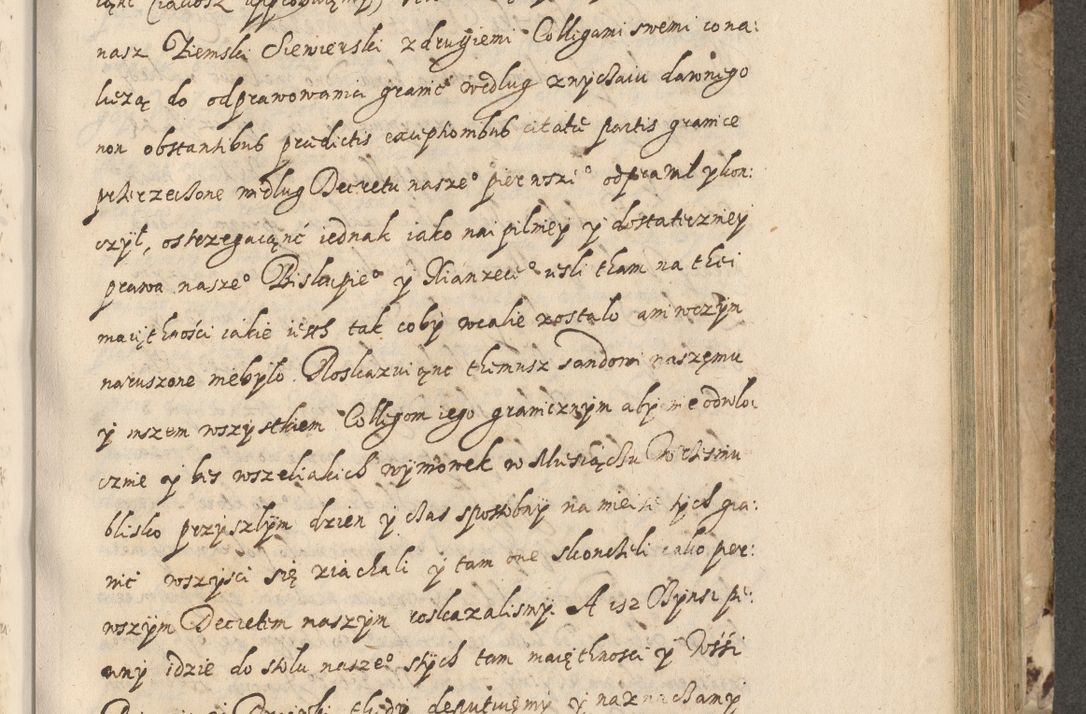 nasz Ziemski Siewierski z drugiemi Colligami swemi cona:
lieżą do odprawowania granic według zwyczaiu dawnego
non obstantibus praedictis exceptionibus citatae partis granice
pherzeczone według Decretu nasze° pierwszi° odprawił y kon:
czył, ostrzegaiąnc iednak iako nai pilniey y dostateczniey
prawa nasze° Biskupie° y Xianzece° iesli tham na thei
maięthności iakie iesth tak coby wcalie zostało ani wczym
naruszone niebyło. Roskazuiąnc themusz Sandowi naszemu
y inszem wszystkiem Colligom iego granicznym aby nie odwlo:
cznie y bes wszeliakich wymowek w Miesiączu Wrzesniu
blisko przyszłym dzien y czas sposobny na miei tych gra:
nic wszyści się ziachali y tam one skonczeli iako per:
wszym Decretem naszym roskazalismy. A isz Czynsz pe:
wny idzie do stołu nasze° stych tam maięthnosci y Wśśi
thedy deputuiemy y naznaczamy